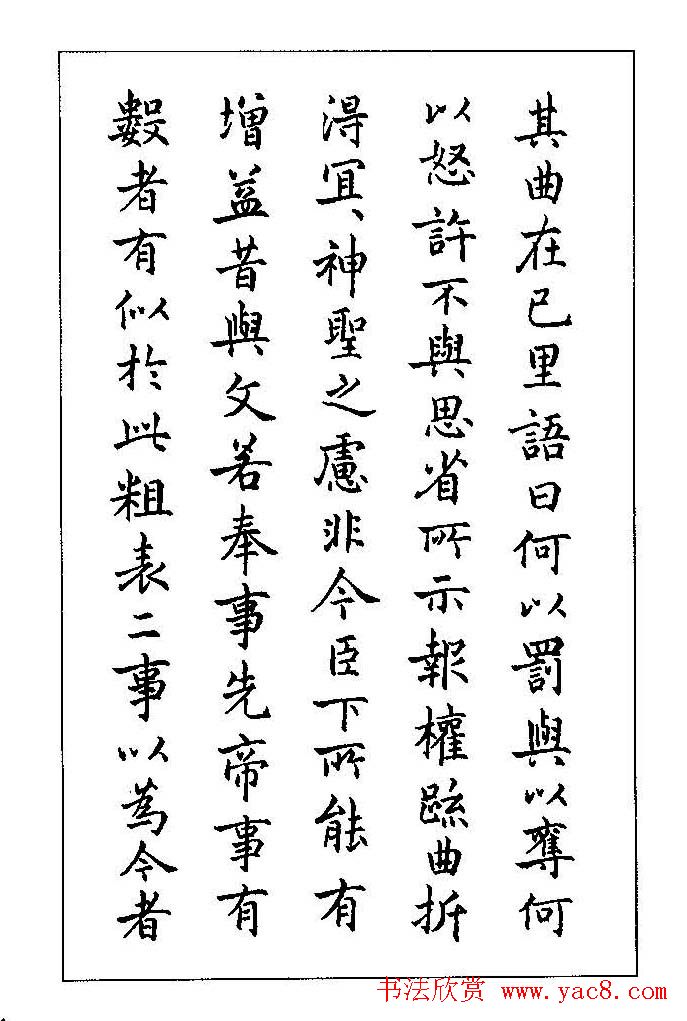 其曲在己里語曰何以罰與以奪何
以怒許不與思省所示報權疏曲折
得冝、神聖之慮非今臣下所能有
增益昔與文若奉事先帝事有
數者有似於此粗表二事以為今者
书法欣赏 www.yac8.com